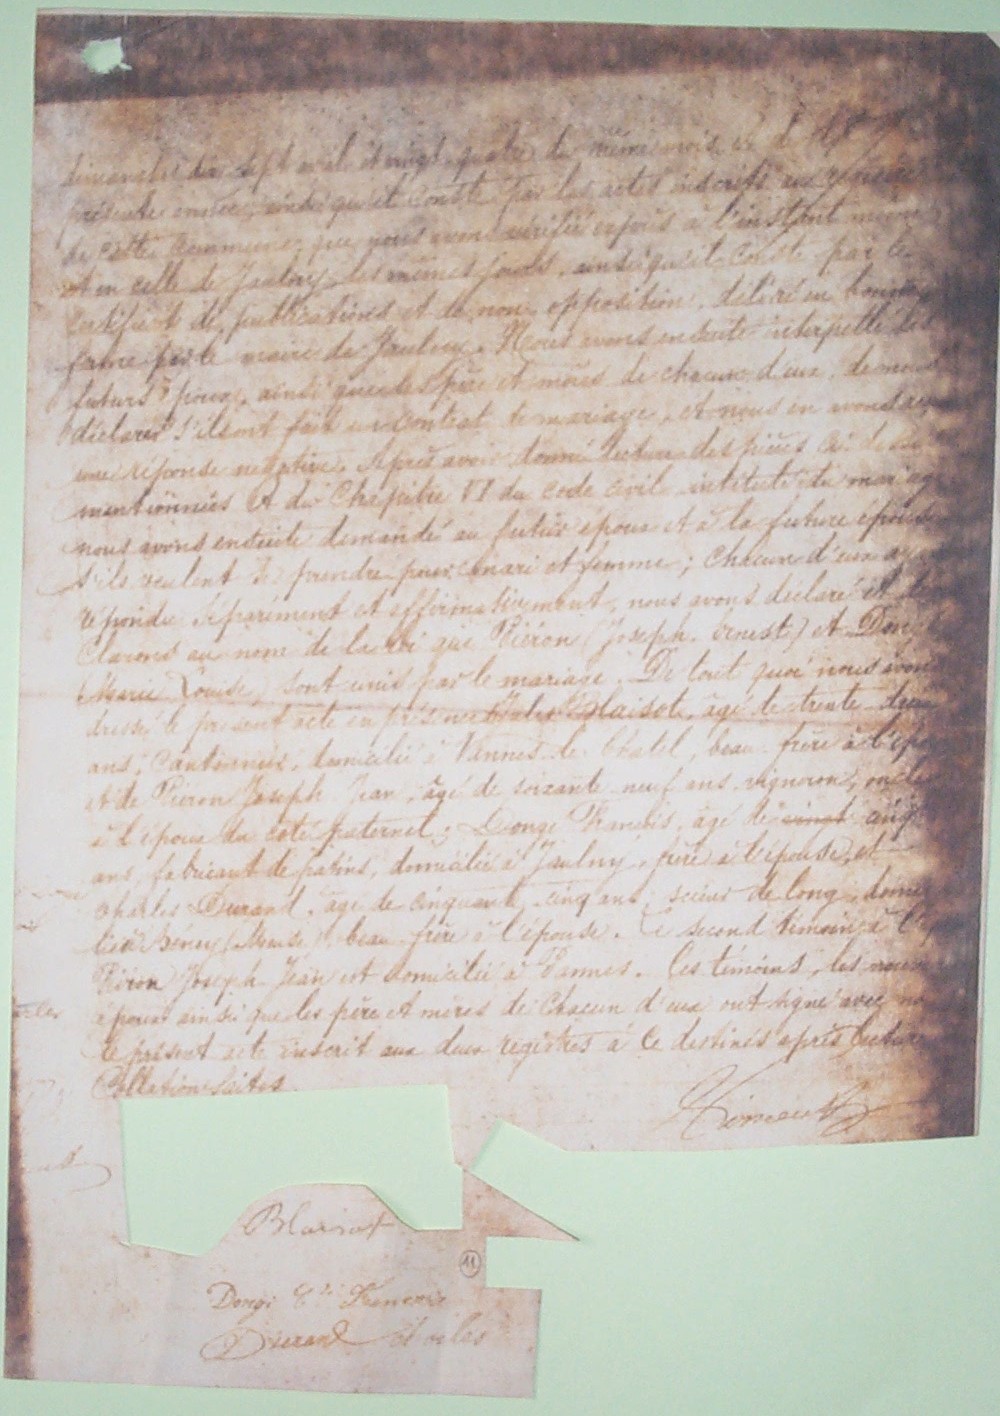 dimanches dix sept avril et vingt quatre du même mois de la
présente année, ainsi qu'il conste par les actes inscrits aux registres
de cette commune, que nous avons vérifié exprès à l'instant même
et en celle de Jaulny les mêmes jours, ainsi qu'il conste par le
certificat de publications et de non opposition, délivré en bonne
forme par le maire de Jaulny. Nous avons ensuite interpellé les
futurs époux, ainsi que les père et mères de chacun d'eux, de nous
déclarer s'ils ont fait un contrat de mariage, et nous en avons
une réponse négative. Après avoir donné lecture des pièces ci-dessus
mentionnées et du Chapitre VI du code civil intitulé du mariage
nous avons ensuite demandé au futur époux et à la future épouse
s'ils veulent se prendre pour mari et femme; chacun d'eux ayant
répondu séparément et affirmativement, nous avons déclaré et dé
clarons au nom de la loi que Piéron (Joseph-Ernest) et Dongé
(Marie Louise) sont unis par le mariage. De tout quoi nous avons
dressé le présent acte en présence Jules Blaisot, âgé de trente
ans, cantonnier, domicilié à Vannes-le-Châtel, beau-frère à l'époux
et de Piéron Joseph Jean, âgé de soixante-neuf ans, vigneron, oncle
à l'époux du côté paternel; Dongé François, âgé de vingt cinq
ans, fabricant de patins, domicilié à Jaulny, frère à l'épouse, et
Charles Durand, âgé de cinquante cinq ans, scieur de long, domici
lié à Bény (Meuse), beau-frère à l'épouse. Le second témoin à l'ép
Piéron Joseph Jean est domicilié à Pannes. Les témoins, les nouv
époux ainsi que les père et mères de chacun d'eux ont signé avec no
le présent acte inscrit aux deux registres à ce destinés après lecture
Collation faites.
Blaisot
11
Dongé François
Durand